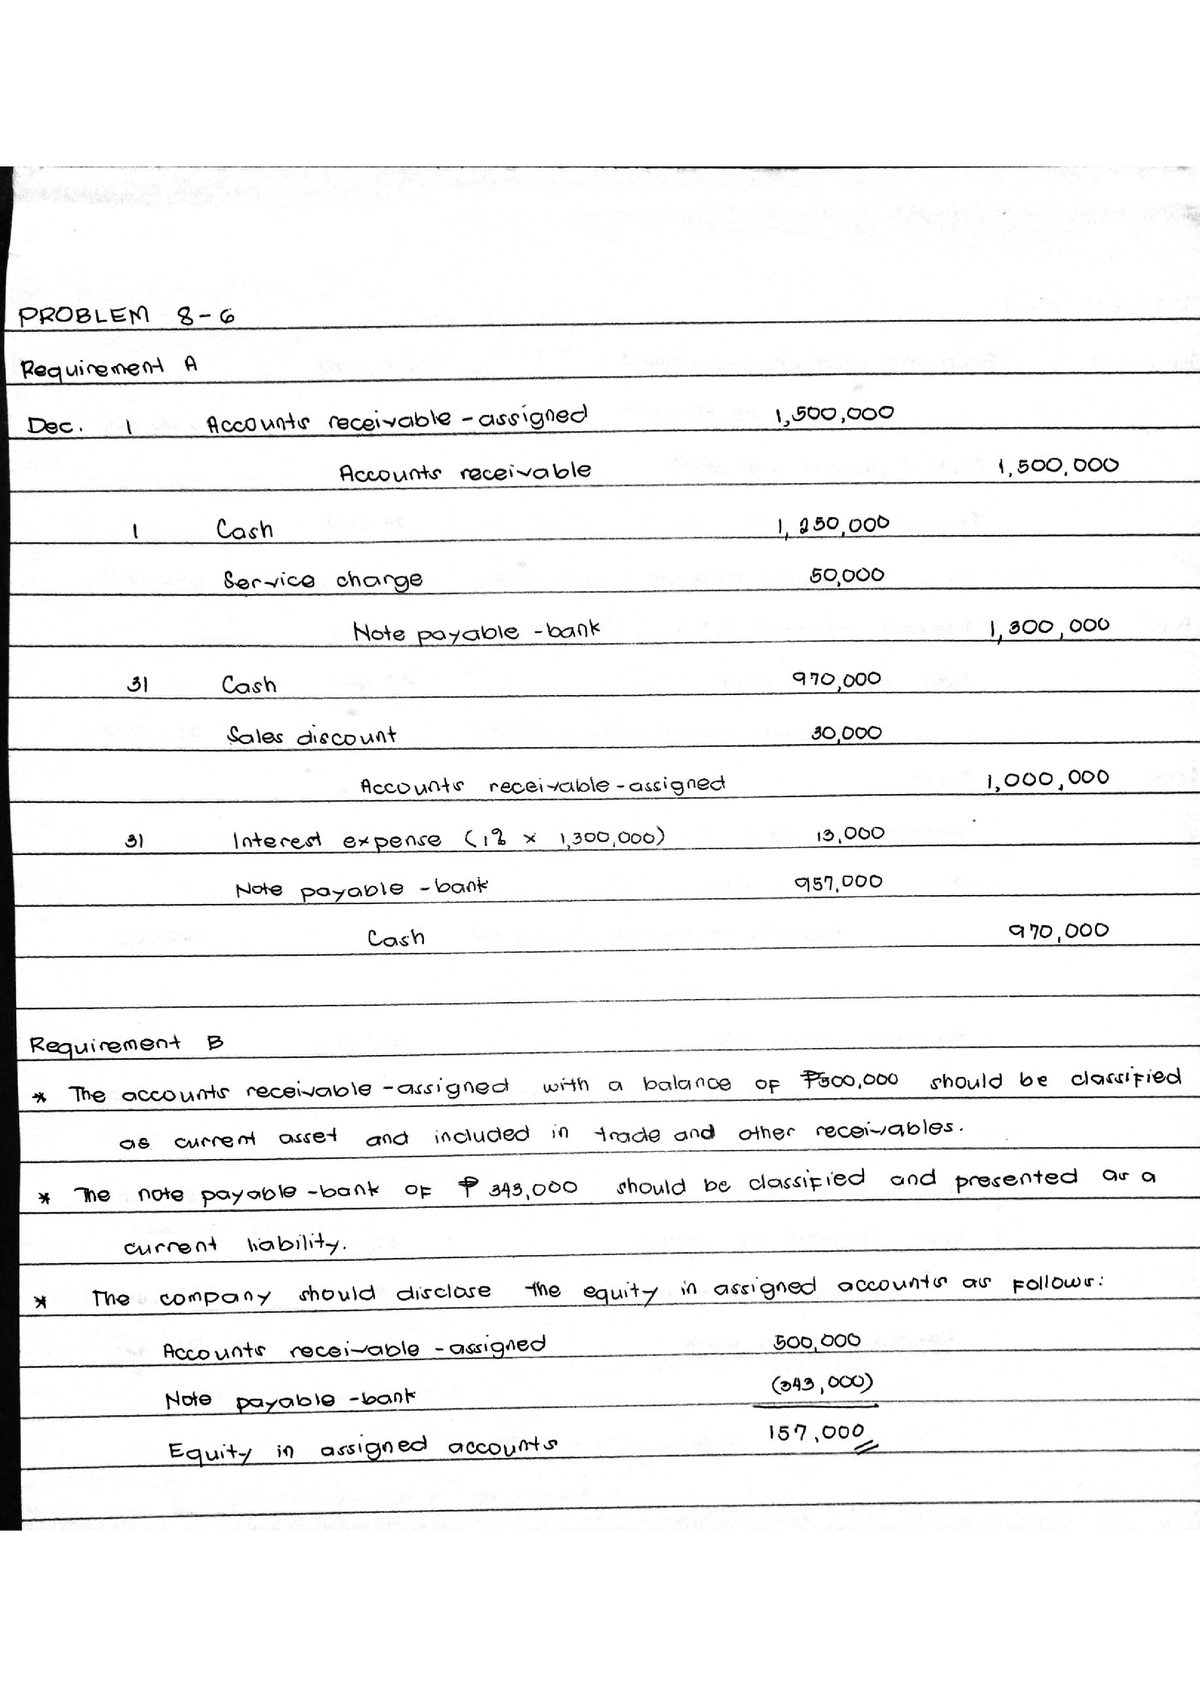 PROBLEM 8-6
Requirement A
Dec. 1 Accounts receivable - assigned 1,500,000
Accounts receivable 1,500,000
1 Cash 1,250,000
Service charge 50,000
Note payable - bank 1,300,000
31 Cash 970,000
Sales discount 30,000
Accounts receivable - assigned 1,000,000
31 Interest expense (1% x 1,300,000) 13,000
Note payable - bank 957,000
Cash 970,000
Requirement B
* The accounts receivable - assigned with a balance of ₱500,000 should be classified
as current asset and included in trade and other receivables.
* The note payable - bank of ₱ 343,000 should be classified and presented as a
current liability.
* The company should disclose the equity in assigned accounts as follows:
Accounts receivable - assigned 500,000
Note payable - bank (343,000)
Equity in assigned accounts 157,000